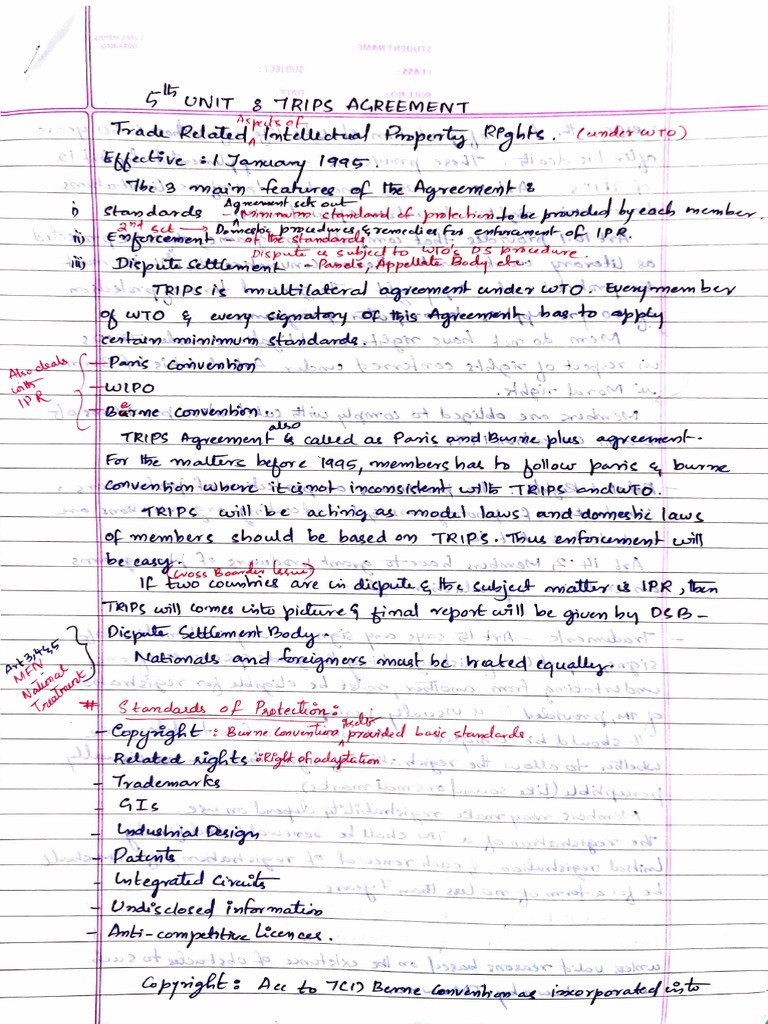 5th UNIT : TRIPS AGREEMENT
Trade Related Aspects of Intellectual Property Rights. (under WTO)
Effective : 1 January 1995.
The 3 main features of the Agreement :
i) Standards - Agreement sets out Minimum standard of protection to be provided by each member.
2nd set → Domestic procedures & remedies for enforcement of IPR.
ii) Enforcement - of the standards
Dispute is subject to WTO's DS procedure.
iii) Dispute Settlement - Panels, Appellate Body etc.
TRIPs is multilateral agreement under WTO. Every member
of WTO & every signatory of this Agreement has to apply
certain minimum standards.
Also deals with IPR
- Paris Convention
- WIPO
- Berne Convention.
TRIPS Agreement is also called as Paris and Burne plus agreement.
For the matters before 1995, members has to follow paris & burne
convention where it is not inconsistent with TRIPS and WTO.
TRIPS will be acting as model laws and domestic laws
of members should be based on TRIPs. Thus enforcement will
be easy.
(Cross Boarder Issue)
If two countries are in dispute & the subject matter is IPR, then
TRIPs will comes into picture & final report will be given by DSB -
Dispute Settlement Body.
Art 3,4 & 5 MFN National Treatment
Nationals and foreigners must be treated equally.
# Standards of Protection :
- Copyright : Burne Convention provided basic standards.
- Related rights : Right of adaptation
- Trademarks
- GIs
- Industrial Design
- Patents
- Integrated Circuits
- Undisclosed information
- Anti-competitive Licences.
Copyright : Acc to 7(1) Berne Convention as incorporated into